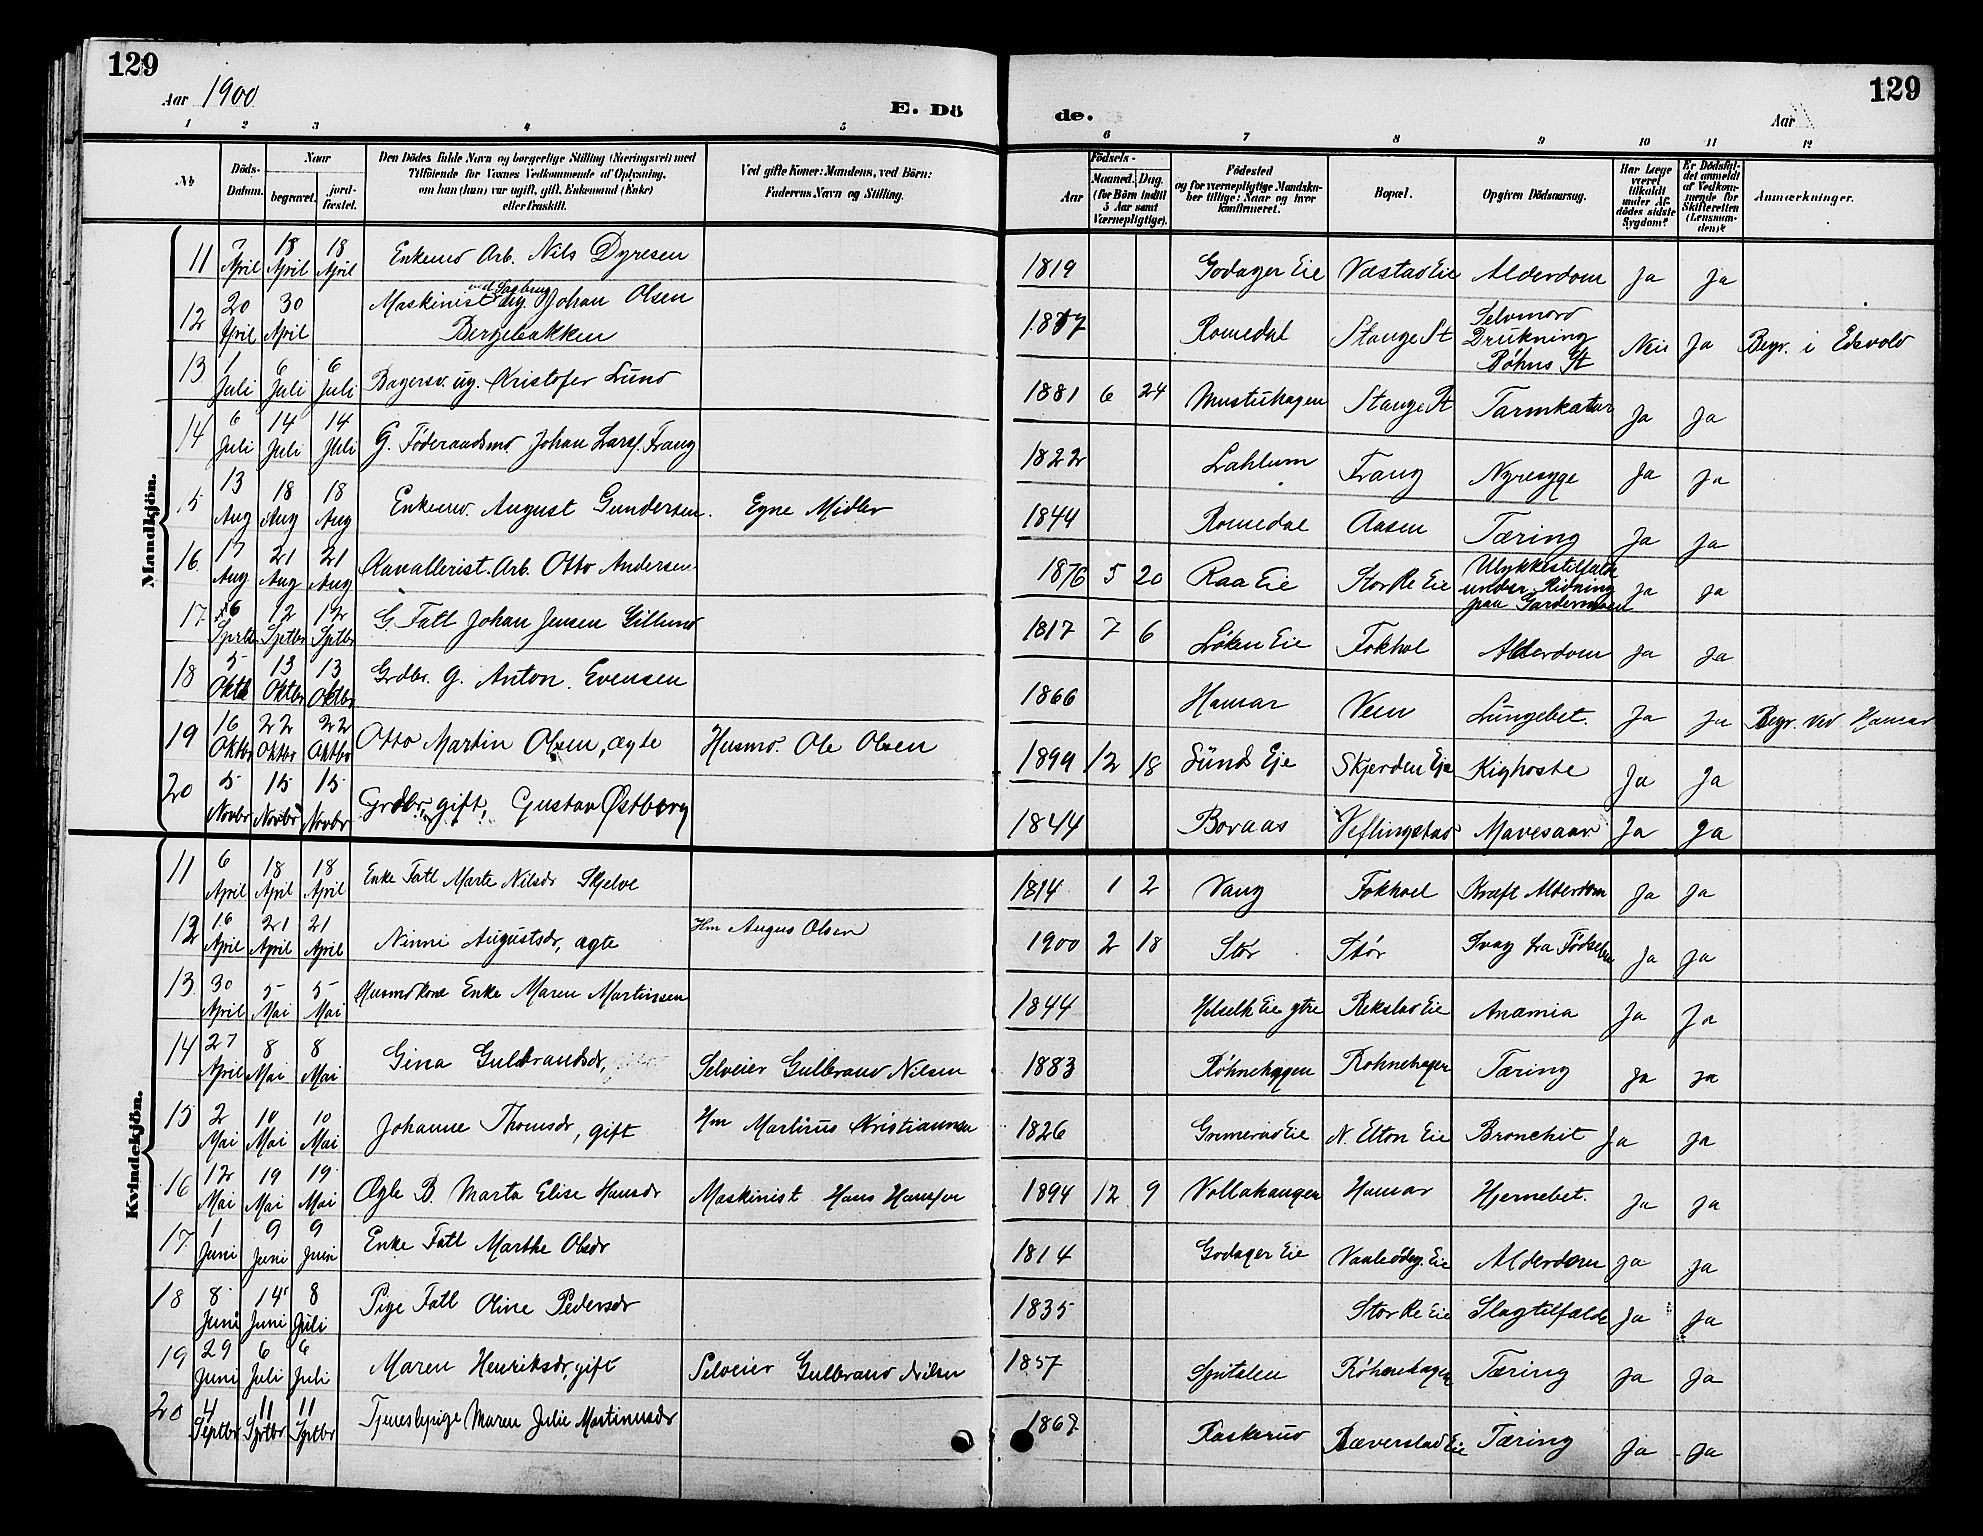 129
129
Aar 1900
E. Dö
de.
Aar
1 2 3 4 5 6 7 8 9 10 11 12
No
Döds-Datum.
Naar
begravet.
jord-fæstet.
Den Dödes fulde Navn og borgerlige Stilling (Næringsvei) med
Tilföiende for Voxnes Vedkommende af Oplysning,
om han (hun) var ugift, gift, Enkemand (Enke)
eller fraskilt.
Ved gifte Koner: Mandens, ved Börn:
Faderens Navn og Stilling.
Födsels-
Aar
Maaned. Dag.
(for Börn indtil
5 Aar samt
Værnepligtige).
Födested
og for værnepligtige Mandska-
ber tillige: Naar og hvor
konfirmeret.
Bopæl.
Opgiven Dödsaarsag.
Har Læge
været
tilkaldt
under Af-
dödes sidste
Sygdom?
Er Dödsfal-
det anmeldt
af Vedkom-
mende for
Skifteretten
(Lensman-
den)?
Anmærkninger.
Mandkjön.
11 7 April 18 April 18 April Enkemd Arb. Nils Dyresen 1819 Godager Eie Væstad Eie Alderdom Ja Ja
12 20 April 30 April Maskinist ved Sagbrug ug. Johan Olsen Bergebakken 1877 Romedal Stange St Selvmord Drukning Bøhns St Nei Ja Begr. i Edsvold
13 1 Juli 6 Juli 6 Juli Bagersv. ug. Kristofer Lund 1881 6 24 Mustuhagen Stange St Tarmkatar Ja Ja
14 6 Juli 14 Juli 14 Juli G. Føderaadsmd Johan Larsf. Frang 1822 Lahlum Frang Nyresyge Ja Ja
5 13 Aug 18 Aug 18 Aug Enkemd. August Gundersen. Egne Midler 1844 Romedal Aasen Tæring Ja Ja
16 17 Aug 21 Aug 21 Aug Kavallerist. Arb. Otto Andersen 1876 5 20 Raa Eie Stor Re Eie Ulykkestilfælde under Ridning paa Gardermoen Ja Ja
17 6 Septbr 12 Septbr 12 Septbr G. Fatl Johan Jensen Gillund 1817 7 6 Løken Eie Fokhol Alderdom Ja Ja
18 5 Oktb 13 Oktbr 13 Oktbr Grdbr. G. Anton. Evensen 1866 Hamar Vem Lungebet. Ja Ja Begr. ved Hamar
19 16 Oktbr 22 Oktbr 22 Oktbr Otto Martin Olsen, ægte Husmd. Ole Olsen 1899 12 18 Lunds Eje Skjerden Eje Kighoste Ja Ja
20 5 Novbr 15 Novbr 15 Novbr Grdbr, gift, Gustav Østberg 1844 Boraas Veflingstad Mavesaar Ja Ja
Kvindekjön.
11 6 April 18 April 18 April Enke Fatl Marte Nilsdr Skjelve 1814 1 2 Vang Fokhoel Kræft Alderdom Ja Ja
12 16 April 21 April 21 April Ninni Augustsdr, ægte Hm Augus Olsen 1900 2 18 Stor Stør Svag fra Fødselen Ja Ja
13 30 April 5 Mai 5 Mai Husmdkone Enke Maren Martinsen 1844 Helseth Eie ytre Rekstad Eie Anæmia Ja Ja
14 27 April 8 Mai 8 Mai Gina Gulbrandsdr, Selveier Gulbrand Nilsen 1883 Røhnehagen Rohnehagen Tæring Ja Ja
15 2 Mai 10 Mai 10 Mai Johanne Thomsdr, gift Hm Martinus Kristiansen 1826 Grimerud Eie N. Elton Eie Bronchit Ja Ja
16 12 Mai 19 Mai 19 Mai Ægte B. Marta Elise Hansdr Maskinist Hans Hansen 1894 12 9 Vollahaugen Hamar Hjernebet. Ja Ja
17 1 Juni 9 Juni 9 Juni Enke Fatl Marthe Olsdr 1814 Godager Eie Eie Alderdom Ja Ja
18 8 Juni 14 Juni 8 Juli Pige Fatl Oline Pedersdr 1835 Stor Re Eie Slagtilfælde Ja Ja
19 29 Juni 6 Juli 6 Juli Maren Henriksdr, gift Selveier Gulbrand Nilsen 1857 Spitalen Røhnehagen Tæring Ja Ja
20 4 Septbr 11 Septbr 11 Septbr Tjenestepige Maren Julie Martinusdr 1867 Raskerud Bæverstad Eie Tæring Ja Ja